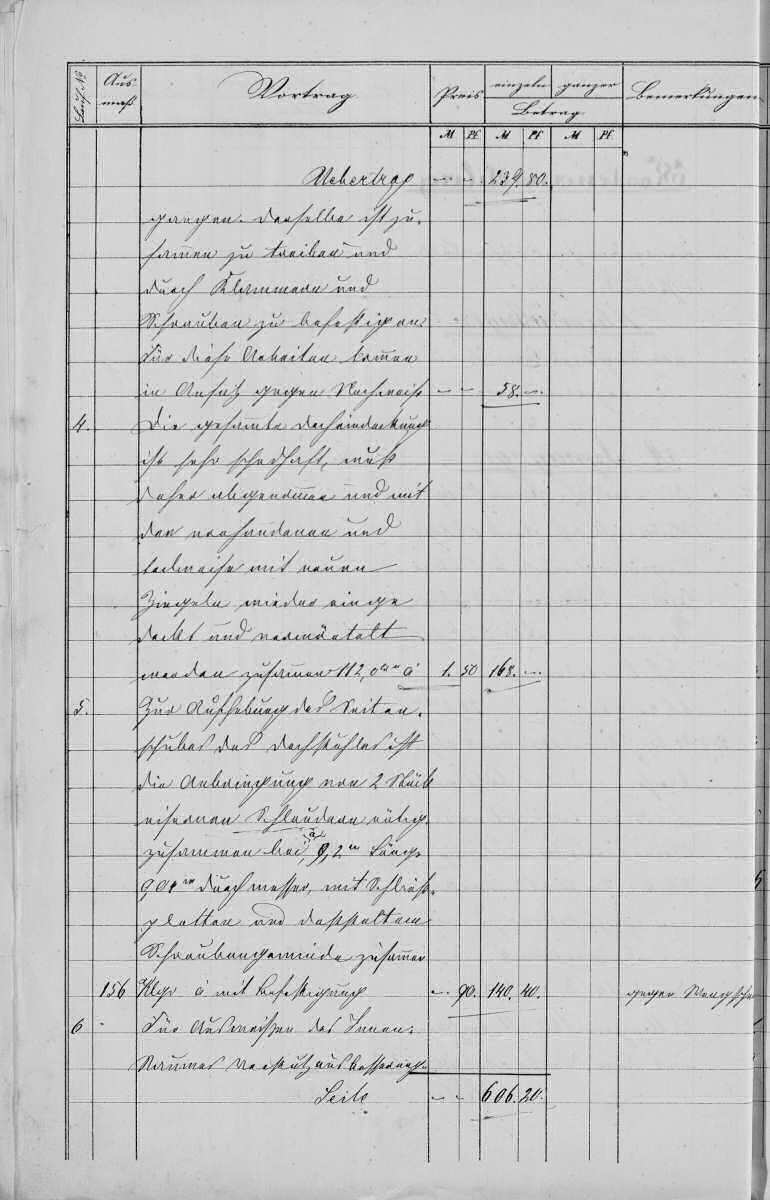 Lauf. № Aus- Vortrag Preis einzeln ganzer Bemerkungen
maß Betrag
M Pf. M Pf. M Pf.
Uebertrag — — 239. 80.
gangen. Derselbe ist zu-
samen zu treiben und
durch Klammern und
Schrauben zu befestigen.
Für diese Arbeiten komen
in Ansatz gegen Nachweis — — 58. —
4. Die gesamte Dacheindeckung
ist sehr schadhaft, muß
daher abgenomen und mit
den vorhandenen und
teilweise mit neuen
Ziegeln wieder einge
deckt und vermörtelt
werden zusamen 112,0 qm à 1. 50 168. —
5. Zur Aufhebung des Seiten-
schubes des Dachstuhles ist
die Anbringung von 2 Stück
eisernen Schlaudern nötig
zusammen bei à 9,2 m Läng.
0,04 m Durchmesser, mit Schließ-
platten und doppeltem
Schraubengewinde zusamen
156 Klgr à mit Befestigung — 90. 140. 40. gegen
6. Für Ausweißen des Innen-
Raumes Verputzausbesserung
Seite — — 606. 20.